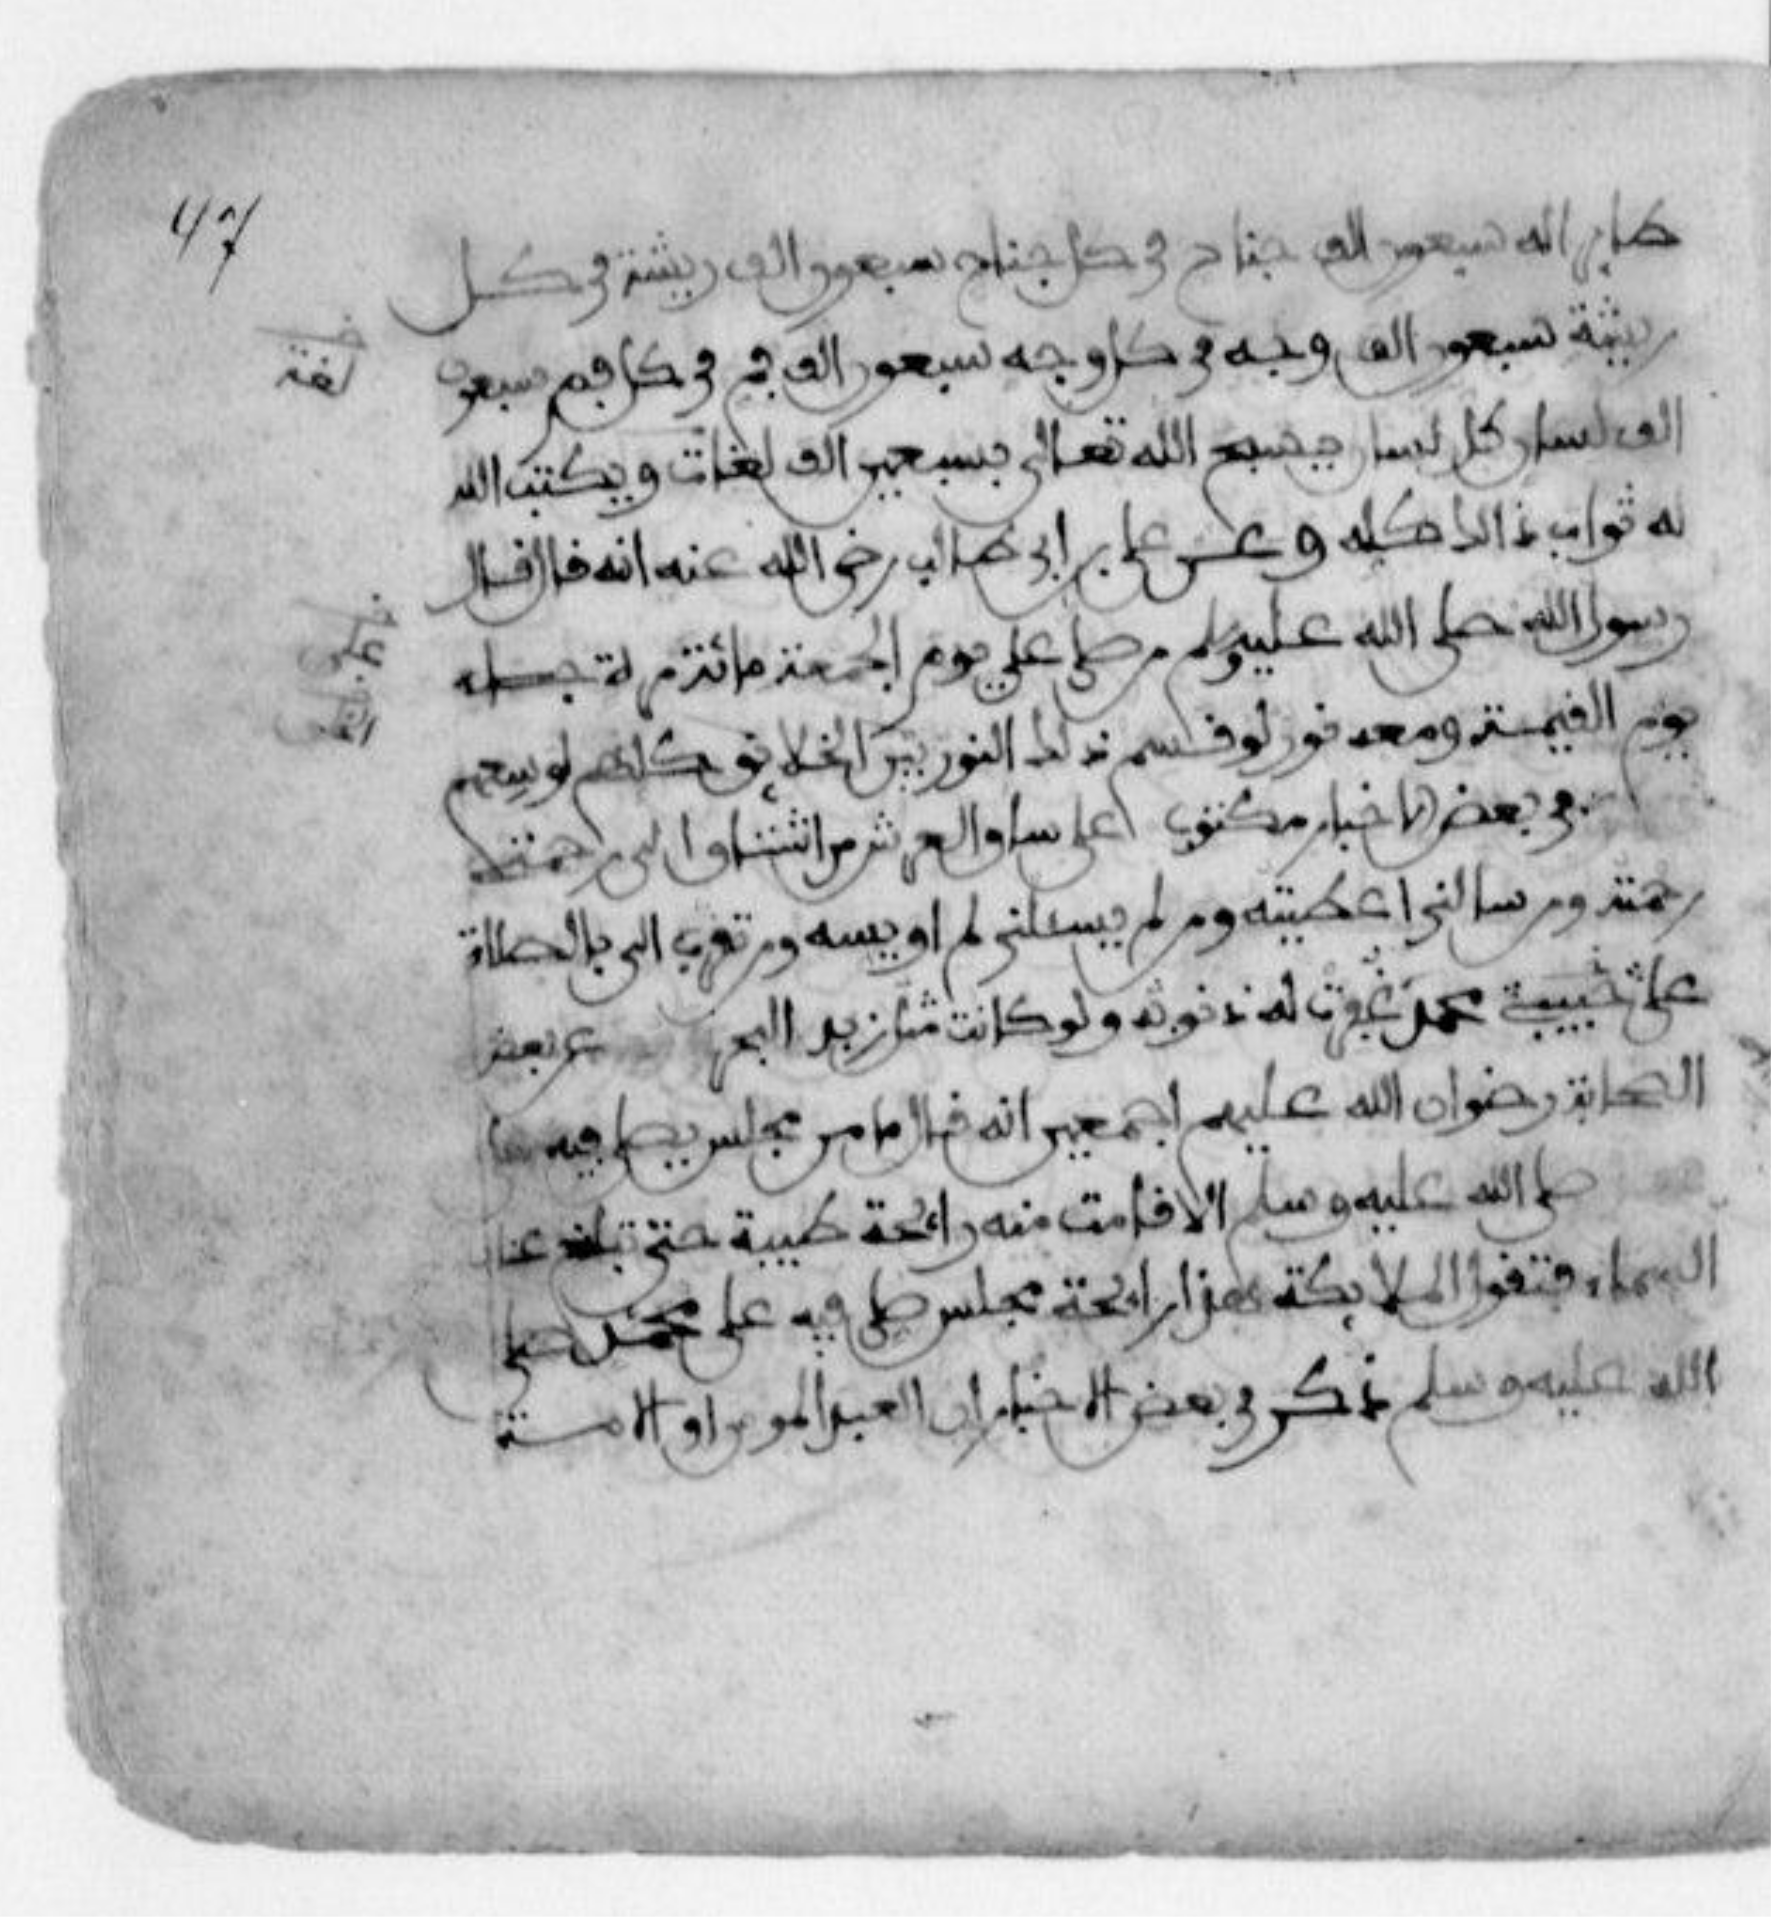 47
طاير له سبعون الف جناح في كل جناح سبعون الف ريشة في كل
ريشة سبعون الف وجه في كل وجه سبعون الف فم في كل فم سبعون
لغة
الف لسان كل لسان يسبح الله تعالى بسبعين الف لغات ويكتب الله
له ثواب ذالك كله وعن علي بن ابي طالب رضي الله عنه انه قال قال
رسول الله صلى الله عليه وسلم من صلى علي يوم الجمعة مائة مرة جاء
يوم القيمة ومعه نور لو قسم ذلك النور بين الخلائق كلهم لوسعهم
في بعض الاخبار مكتوب على ساق العرش من اشتاق الى رحمتي
رحمته ومن سالني اعطيته ومن لم يسئلني لم اويسه ومن تقرب الي بالصلاة
على حبيبي محمد غفرت له ذنوبه ولو كانت مثل زبد البحر عن بعض
الصحابة رضوان الله عليهم اجمعين انه قال ما من مجلس يصلى فيه
صلى الله عليه وسلم الا قامت منه رائحة طيبة حتى تبلغ عنان
السماء فتقول الملايكة هذا رائحة مجلس صلي فيه على محمد صلى
الله عليه وسلم ذكر في بعض الاخبار ان العبد المومن او الامة